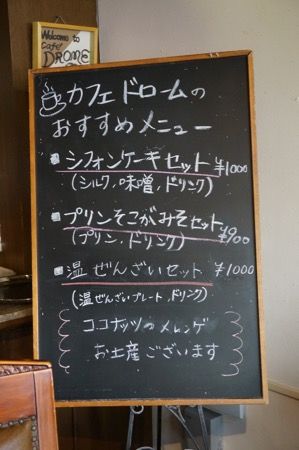 Welcome to
Cafe
DROME
カフェドロームの
おすすめメニュー
シフォンケーキセット ¥1000
(シルク,味噌,ドリンク)
プリンそこがみそセット ¥900
(プリン,ドリンク)
温ぜんざいセット ¥1000
(温ぜんざいプレート,ドリンク)
ココナッツのメレンゲ
お土産ございます